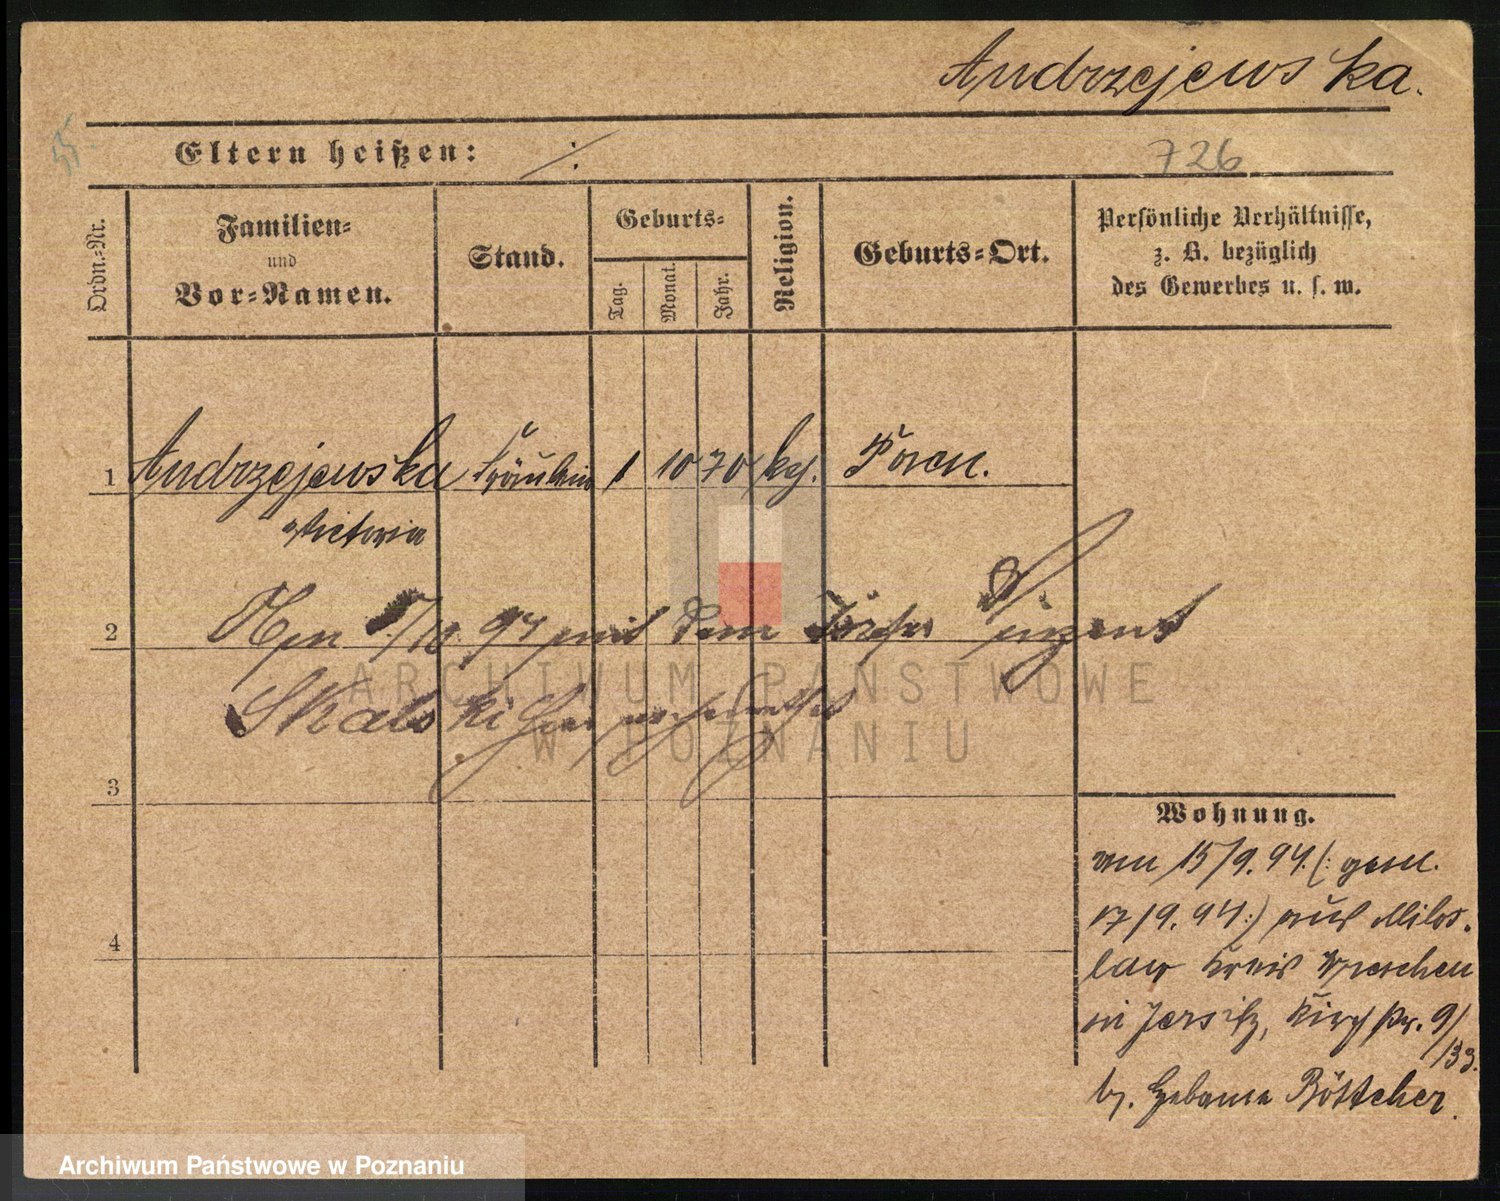 Andrzejewska.
55.
Eltern heißen: ./.
726
Ordn.-Nr.
Familien=
und
Vor=Namen.
Stand.
Geburts=
Tag.
Monat.
Jahr.
Religion.
Geburts=Ort.
Persönliche Verhältnisse,
z. B. bezüglich
des Gewerbes u. s. w.
1 Andrzejewska Fräulein 1 10 70 kg. Posen.
Victoria
2
/10. 94 mit dem
Skalski hier
3
4
Wohnung.
am 15/9. 94. (: gem.
17/9. 94 :) aus Milos-
law Kreis Wreschen
in Jersitz, Kirchstr. 9/
/33.
b. Hebame Böttcher.
ARCHIWUM PAŃSTWOWE
W POZNANIU
Archiwum Państwowe w Poznaniu